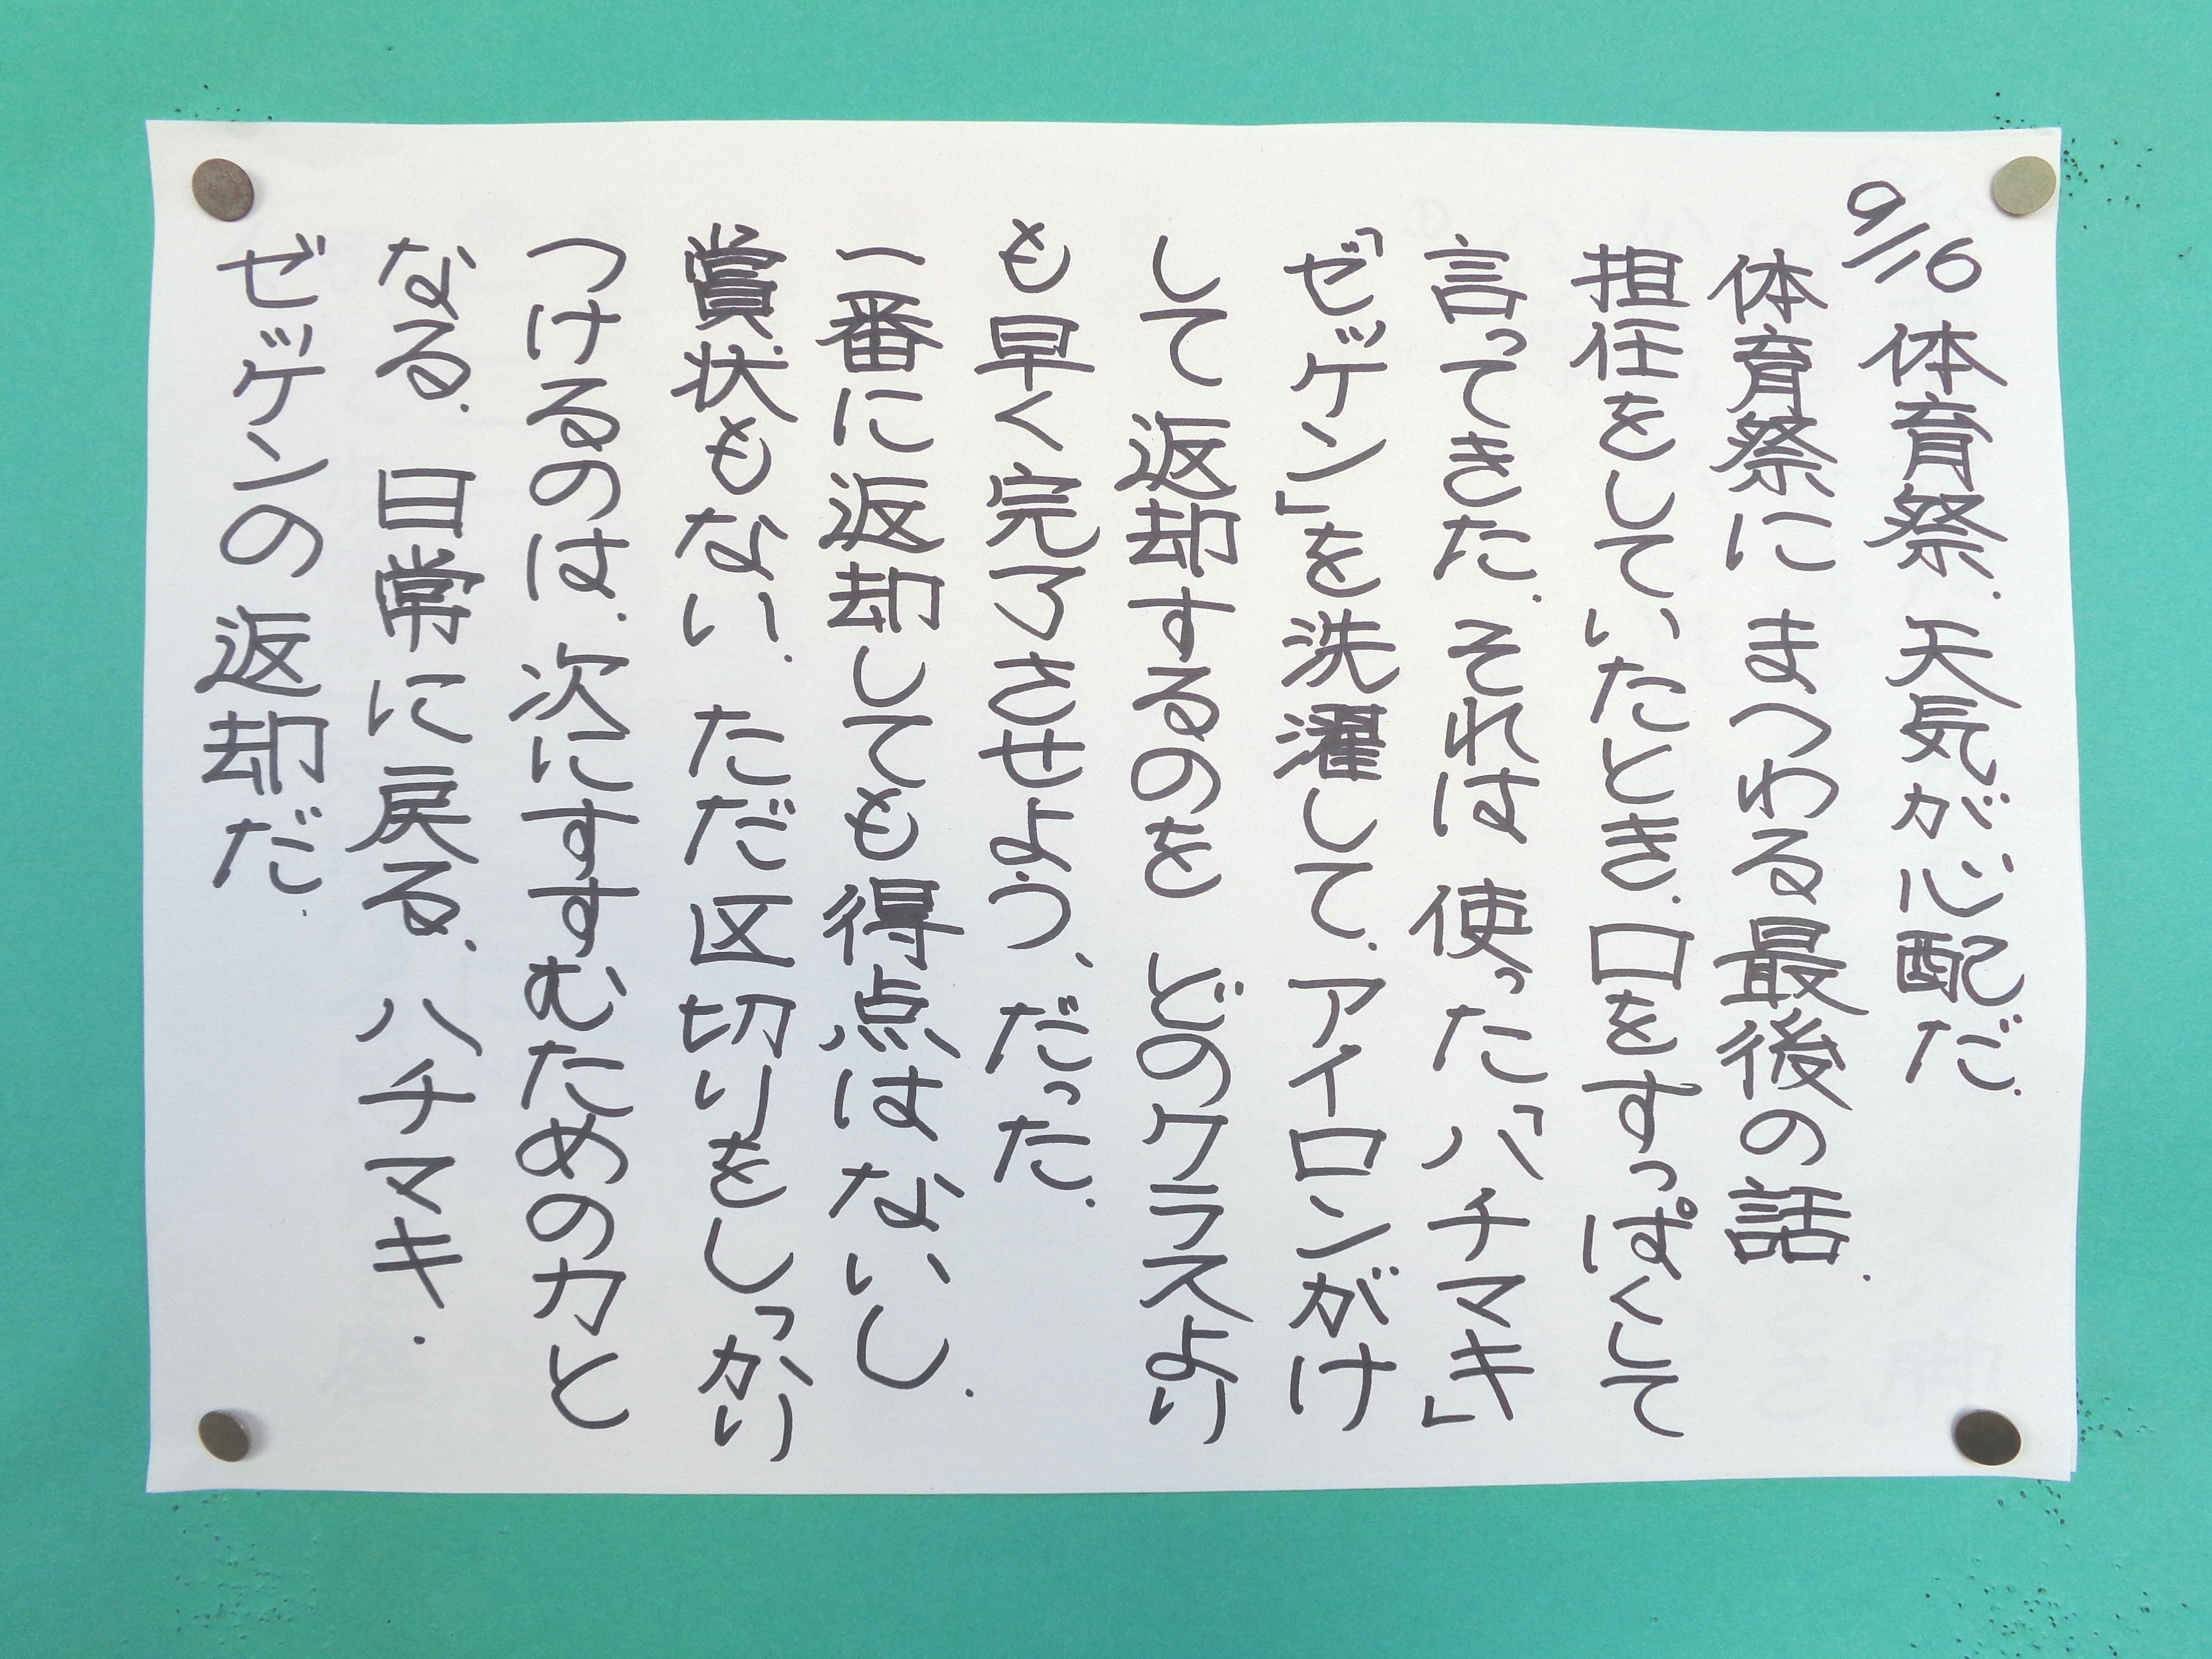 9/16 体育祭．天気が心配だ．
体育祭に まつわる最後の話．
担任をしていたとき．口をすっぱくして
言ってきた．それは 使った「ハチマキ」
「ゼッケン」を洗濯して．アイロンがけ
して 返却するのを どのクラスより
も早く完了させよう、だった．
一番に返却しても得点はないし．
賞状もない．ただ区切りをしっかり
つけるのは．次にすすむための力と
なる．日常に戻る．ハチマキ．
ゼッケンの返却だ．